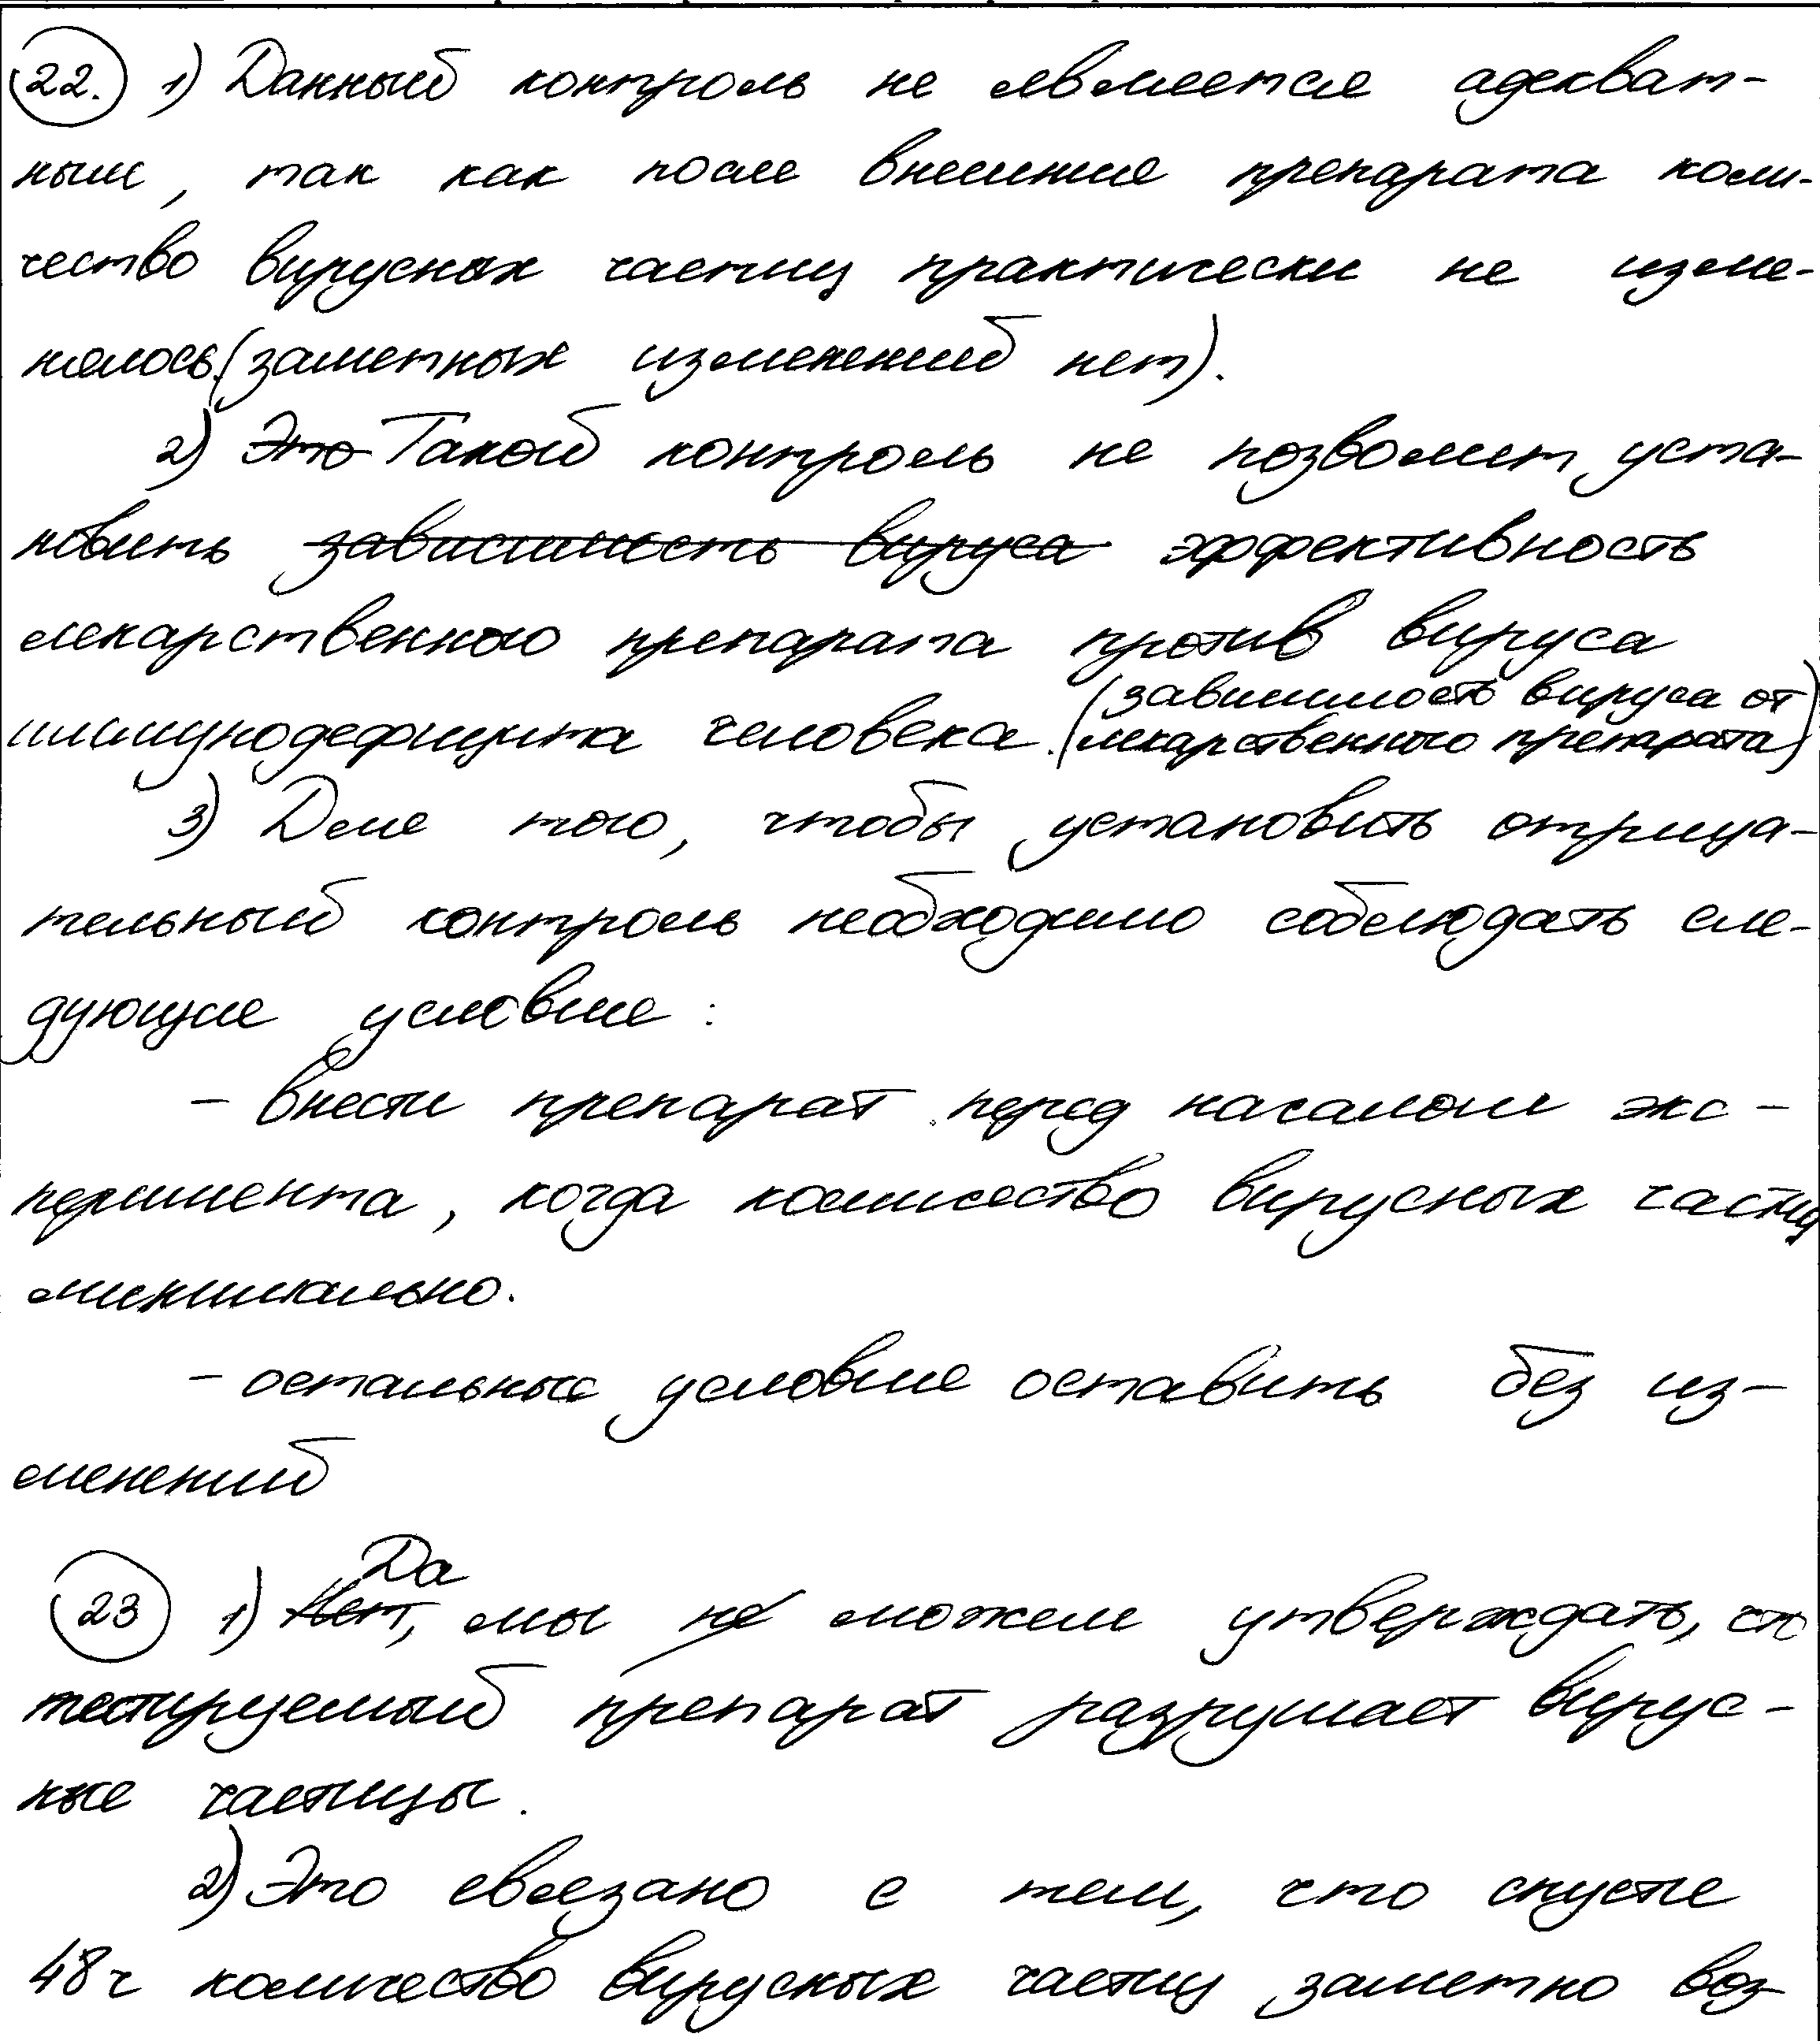 22. 1) Данный контроль не является адекват-
ным, так как после внешние препарата коли-
чество вирусных частиц практически не изме-
нялось (заметных изменений нет).
2) Это Такой контроль не позволяет уста-
новить зависимость вируса эффективность
лекарственного препарата против вируса
(зависимость вируса от
иммунодефицита человека. лекарственного препарата)
3) Для того, чтобы установить отрица-
тельный контроль необходимо соблюдать сле-
дующие условия:
- внести препарат перед началом экс-
перимента, когда количество вирусных частиц
минимально.
- остальные условия оставить без из-
менений
Да
23 1) Нет, мы не можем утверждать, что
тестируемый препарат разрушает вирус-
ные частицы.
2) Это связано с тем, что спустя
48ч количество вирусных частиц заметно воз-